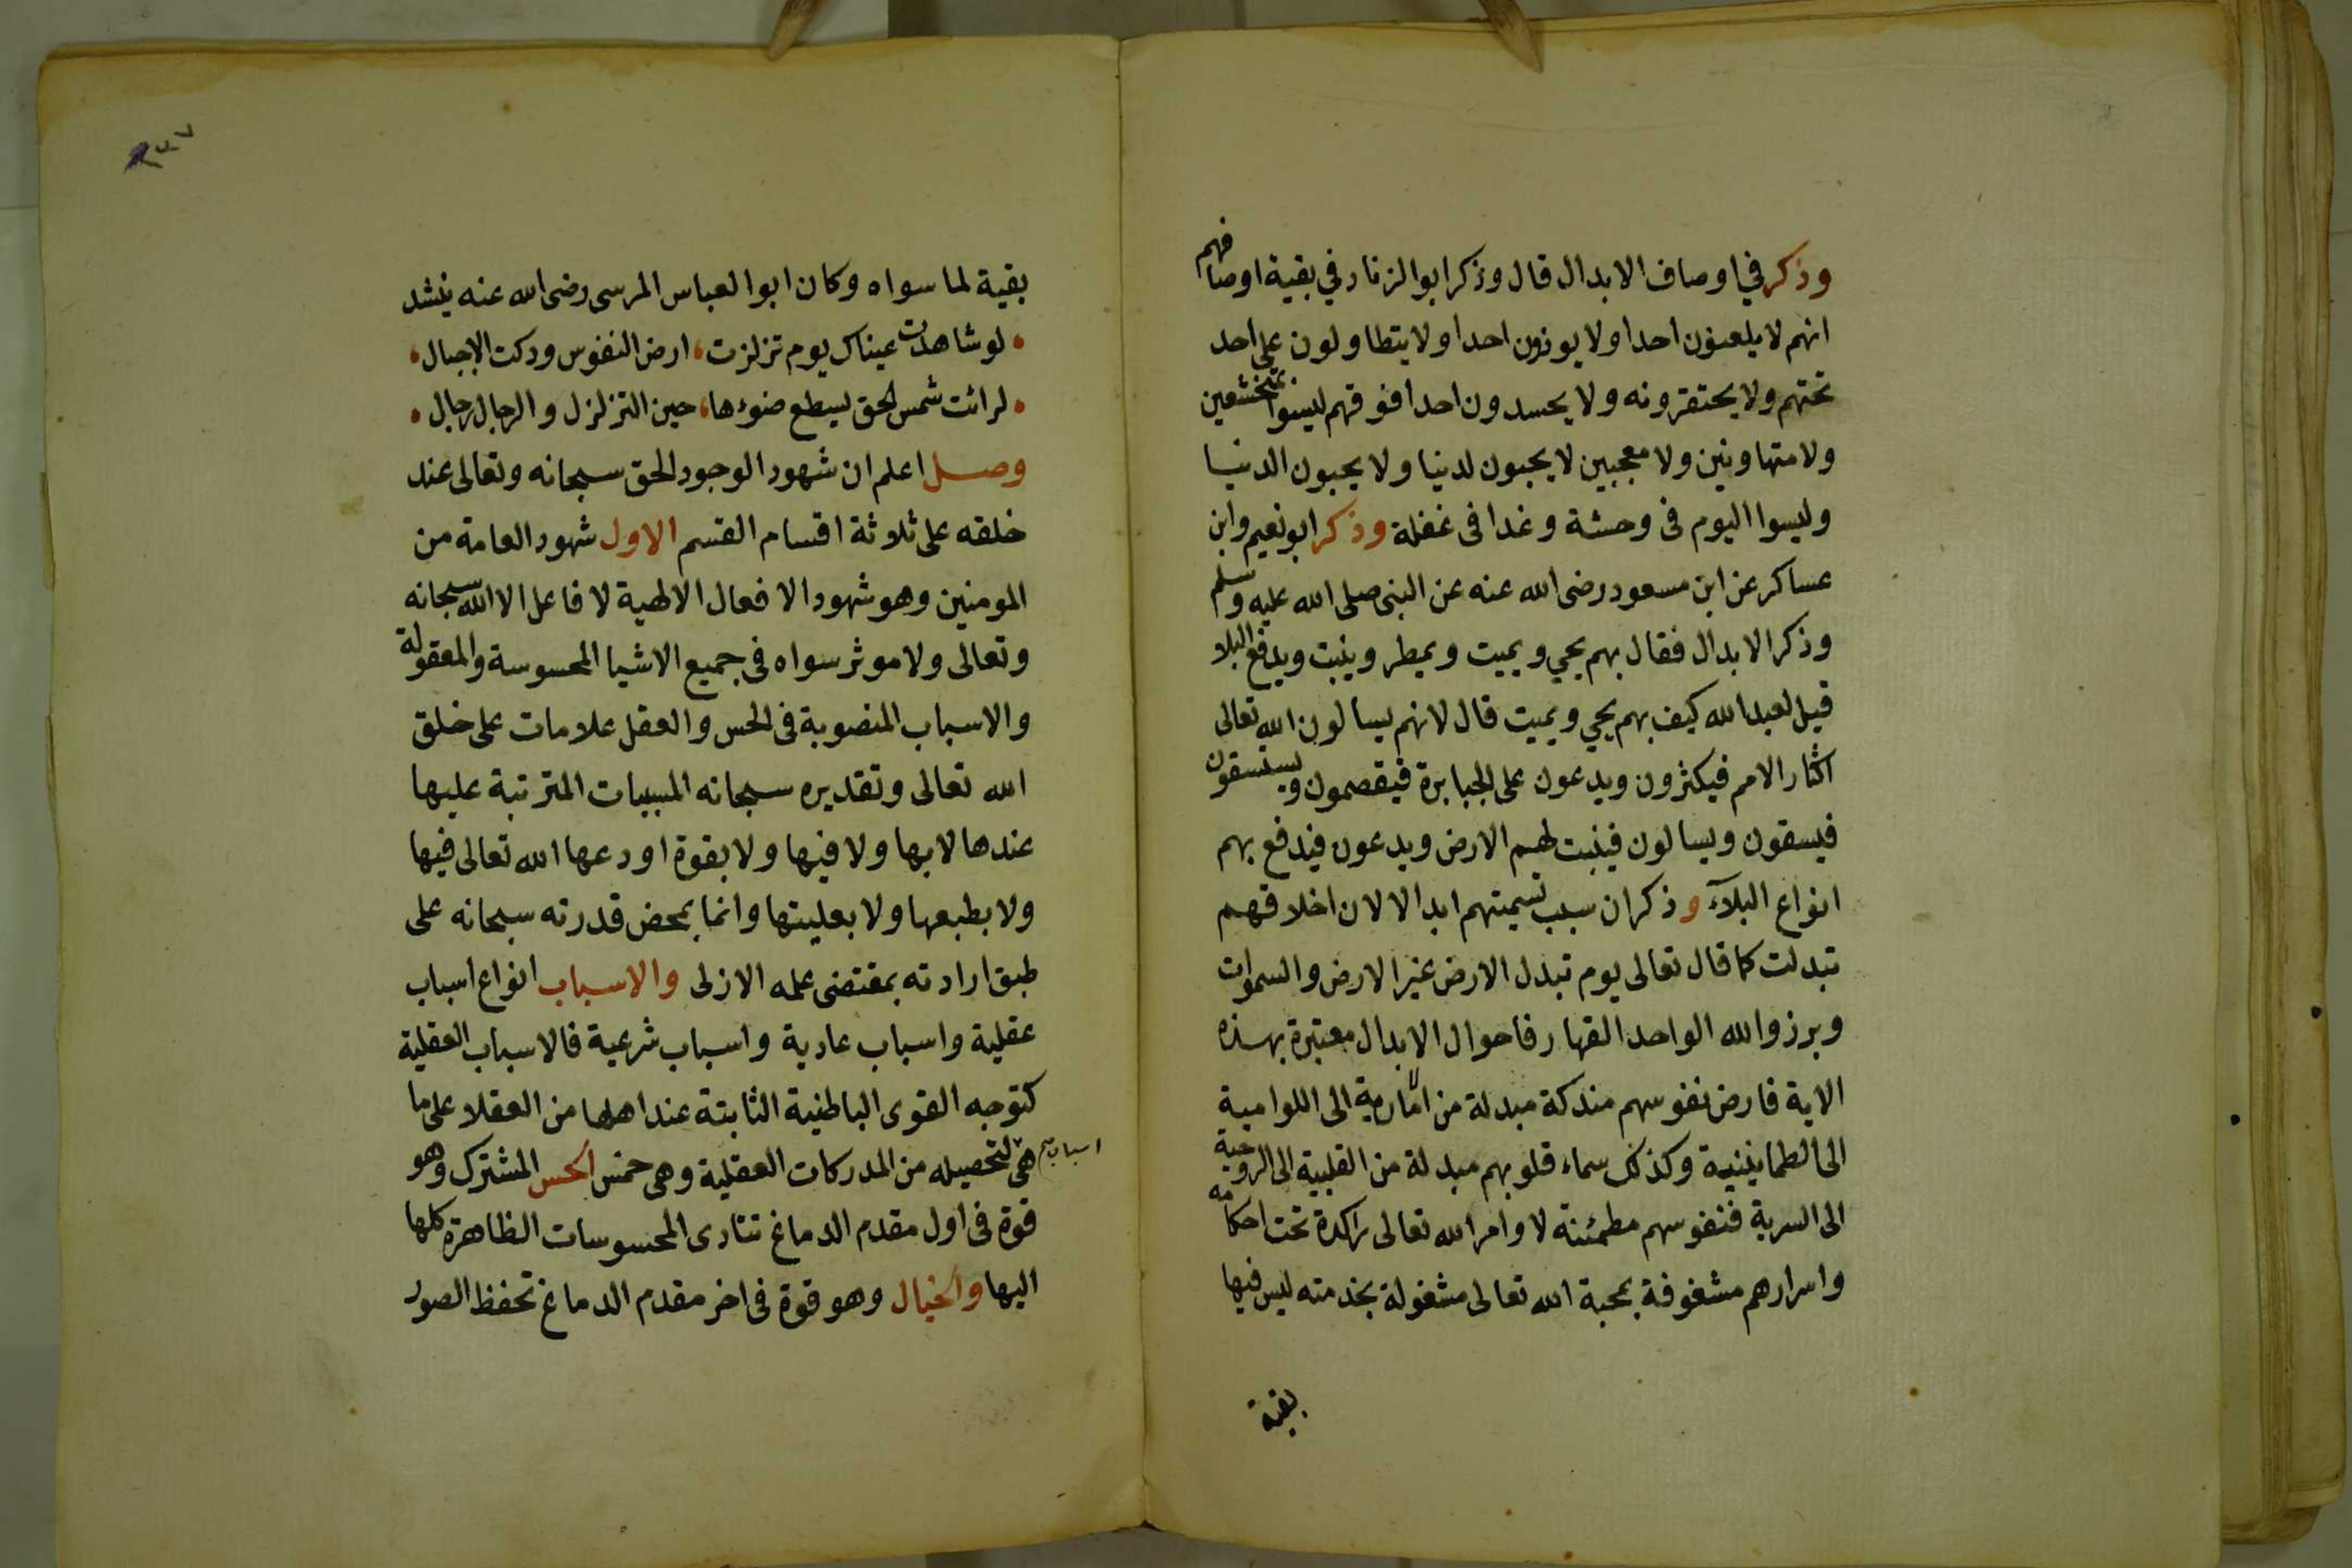 وذكر في اوصاف الابدال قال وذكر ابوالزناد في بقية اوصافهم
انهم لا يلعنون احدا ولا يوذون احدا ولا يتطاولون على احد
تحتهم ولا يحتقرونه ولا يحسدون احدا فوقهم ليسوا بمتخشعين
ولا متهاونين ولا معجبين لا يحبون لدنيا ولا يحبون الدنيا
وليسوا اليوم فى وحشة وغدا فى غفلة وذكر ابونعيم وابن
عساكر عن ابن مسعود رضى الله عنه عن النبى صلى الله عليه وسلم
وذكر الابدال فقال بهم يحيي ويميت ويمطر وينبت ويدفع البلا
قيل لعبد الله كيف بهم يحيي ويميت قال لانهم يسالون الله تعالى
اكثار الامم فيكثرون ويدعون على الجبابرة فيقصمون ويستسقون
فيسقون ويسالون فينبت لهم الارض ويدعون فيدفع بهم
انواع البلآء وذكر ان سبب تسميتهم ابدالا لان اخلاقهم
تبدلت كما قال تعالى يوم تبدل الارض غير الارض والسموات
وبرزوا لله الواحد القهار فاحوال الابدال معتبرة بهذه
الاية فارض نفوسهم مندكة مبدلة من الامارية الى اللوامية
الى الطمانينية وكذلك سماء قلوبهم مبدلة من القلبية الى الروحية
الى السرية فنفوسهم مطمئنة لاوامر الله تعالى راكدة تحت احكامه
واسرارهم مشغوفة بمحبة الله تعالى مشغولة بخدمته ليس فيها
بقية
١٣٧
بقية لما سواه وكان ابوالعباس المرسى رضى الله عنه ينشد
لو شاهدت عيناك يوم تزلزت، ارض النفوس ودكت الاجبال
لرائت شمس الحق يسطع ضوءها، حين التزلزل والرجال رجال
وصل اعلم ان شهود الوجود الحق سبحانه وتعالى عند
خلقه على ثلاثة اقسام القسم الاول شهود العامة من
المومنين وهو شهود الافعال الالهية لا فاعل الا الله سبحانه
وتعالى ولا موثر سواه فى جميع الاشيا المحسوسة والمعقولة
والاسباب المنصوبة فى الحس والعقل علامات على خلق
الله تعالى وتقديره سبحانه المسببات المترتبة عليها
عندها لا بها ولا فيها ولا بقوة اودعها الله تعالى فيها
ولا بطبعها ولا بعليتها وانما بمحض قدرته سبحانه على
طبق ارادته بمقتضى علمه الازلى والاسباب انواع اسباب
عقلية واسباب عادية واسباب شرعية فالاسباب العقلية
كتوجه القوى الباطنية الثابتة عند اهلها من العقلا على ما
هى اسباب لتحصيله من المدركات العقلية وهى خمس الحس المشترك وهو
قوة فى اول مقدم الدماغ تتادى المحسوسات الظاهرة كلها
اليها والخيال وهو قوة فى اخر مقدم الدماغ تحفظ الصور